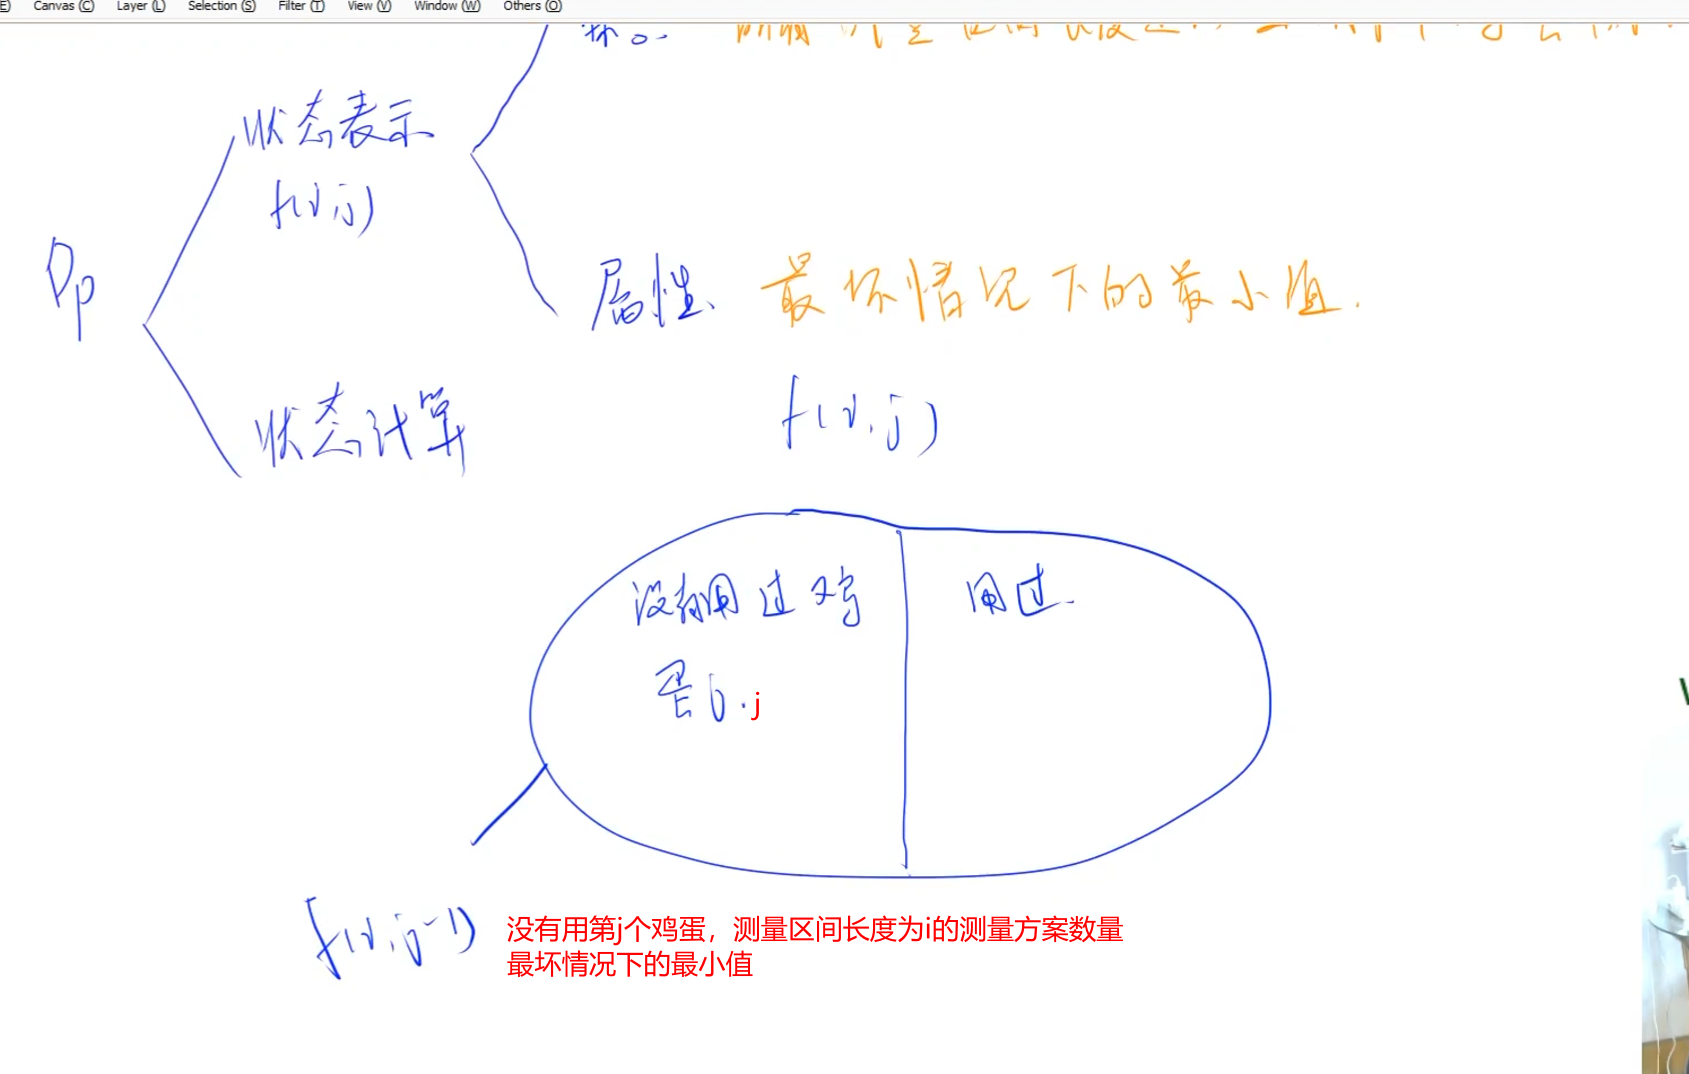 Canvas (C) Layer (L) Selection (S) Filter (T) View (V) Window (W) Others (O)
状态表示
f(i,j)
Dp
属性. 最坏情况下的最小值.
状态计算
f(i,j)
没有用过鸡
用过
蛋j.j
f(i,j-1)
没有用第j个鸡蛋，测量区间长度为i的测量方案数量
最坏情况下的最小值